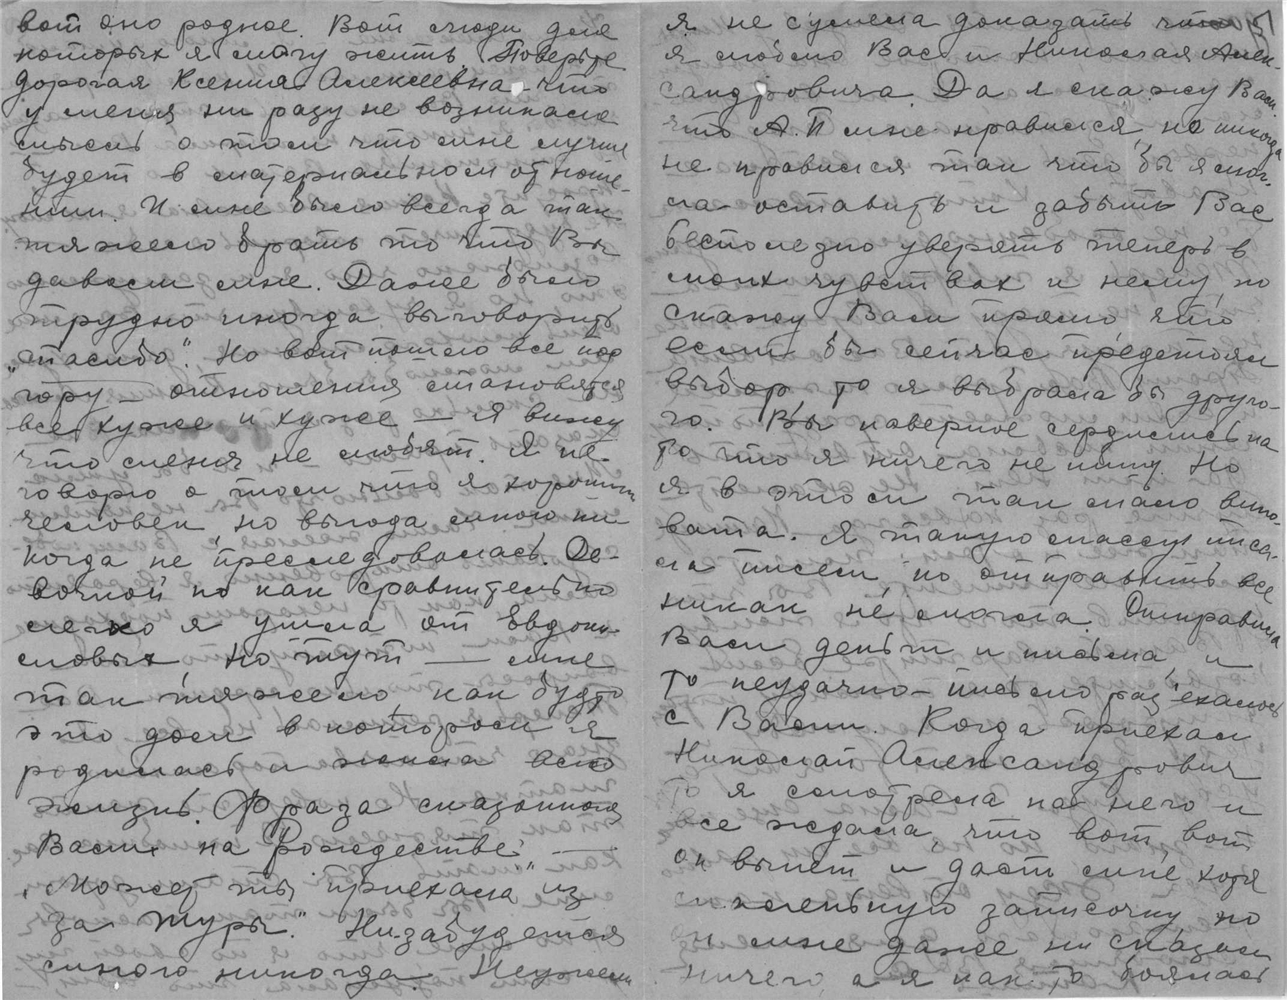 вот оно родное. Вот люди для
которых я могу жить. Поверьте
дорогая Ксения Алексеевна, что
у меня ни разу не возникала
мысль о том что мне лучше
будет в материальном отноше-
нии. И мне было всегда так
тяжело брать то что Вы
давали мне. Даже было
трудно иногда выговорить
„спасибо". Но вот пошло все под
гору — отношения становятся
все хуже и хуже — я вижу
что меня не любят. Я не
говорю о том что я хороший
человек, но выгода мною ни-
когда не преследовалась.
но как сравнительно
легко я ушла от Евдоки-
мовых но тут — мне
так тяжело, как будто
это дом в котором я
родилась и жила всю
жизнь. Фраза сказанная
Вами на Рождестве —
„Может ты приехала из
за Шуры." Незабудется
мною никогда. Неужели
я не сумела доказать что
я люблю Вас и Николая Алек-
сандровича. Да я скажу Вам.
что А.П мне нравился, но никогда
не нравился так что бы я смог-
ла оставить и забыть Вас
бесполезно уверять теперь в
моих чувствах к нему, но
скажу Вам прямо что
если бы сейчас предстоял
выбор то я выбрала бы друго-
го. Вы наверное сердились на
то что я ничего не пишу. Но
я в этом так мало вино-
вата. Я такую массу писа-
ла писем но отправить все
никак не могла. Отправила
Вам деньги и письма, и
то неудачно — письмо раз'ехалось
с Вами. Когда приехал
Николай Александрович
то я смотрела на него и
все ждала, что вот вот
он вынет и даст мне хотя
маленькую записочку но
он мне даже ни сказал
ничего, а я как то боялась